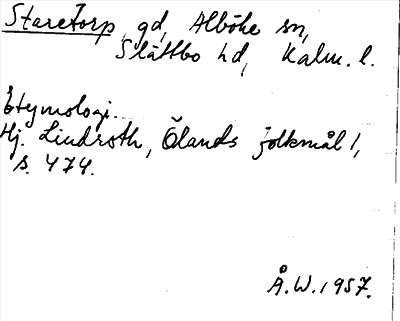 Staretorp, gd, Alböke sn,
Slättbo hd, Kalm. l.
Etymologi.
Hj. Lindroth, Ölands folkmål 1,
s. 474.
Å.W. 1957.